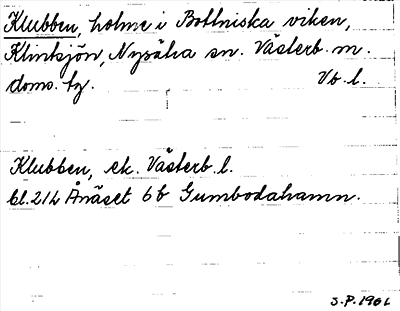 Klubben, holme i Bottniska viken,
Klintsjön, Nysätra sn. Västerb. m.
doms. tg. Vb. l.
Klubben, ek. Västerb. l.
bl. 21L Ånäset 6b Gumbodahamn.
S.P. 1961